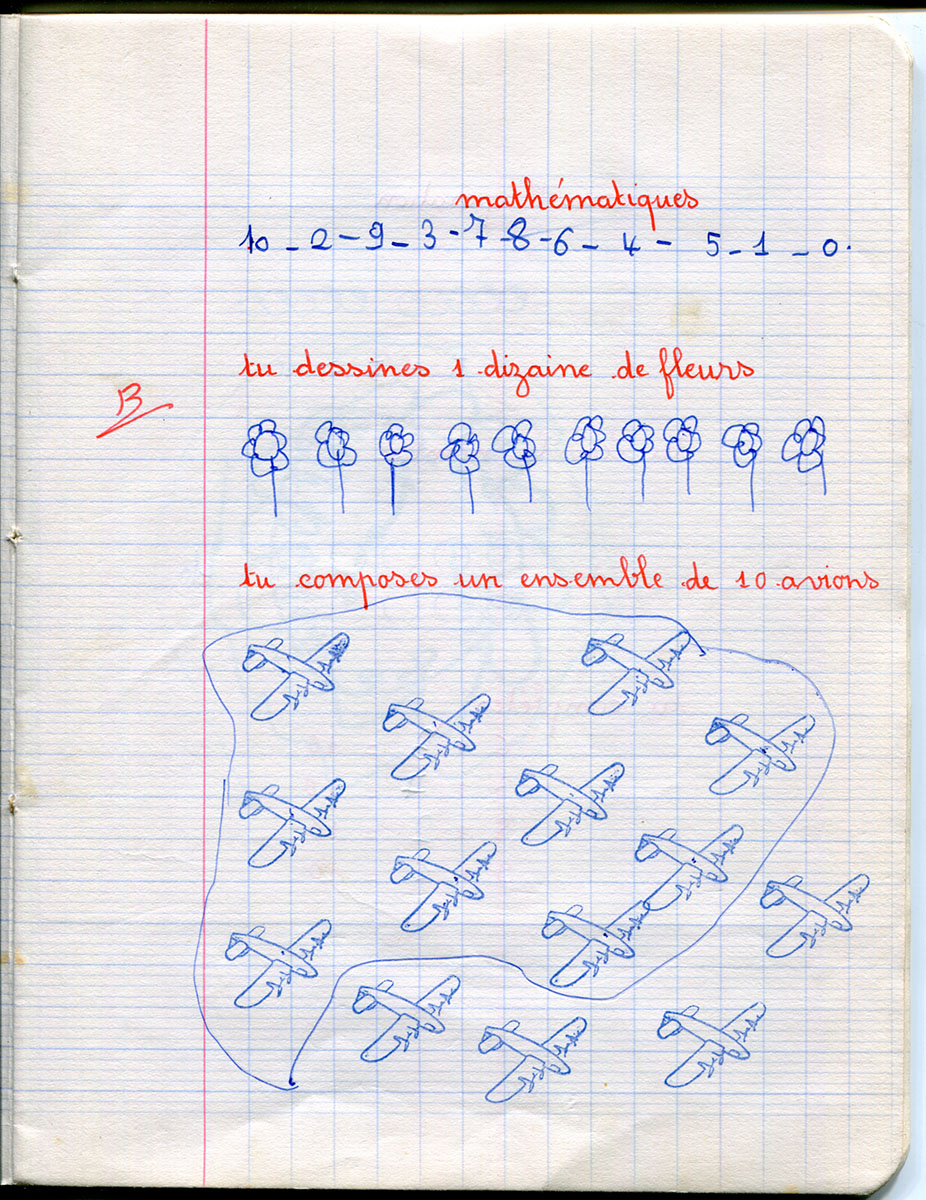 mathématiques
10 - 2 - 9 - 3 - 7 - 8 - 6 - 4 - 5 - 1 - 0.
tu dessines 1 dizaine de fleurs
B
tu composes un ensemble de 10 avions